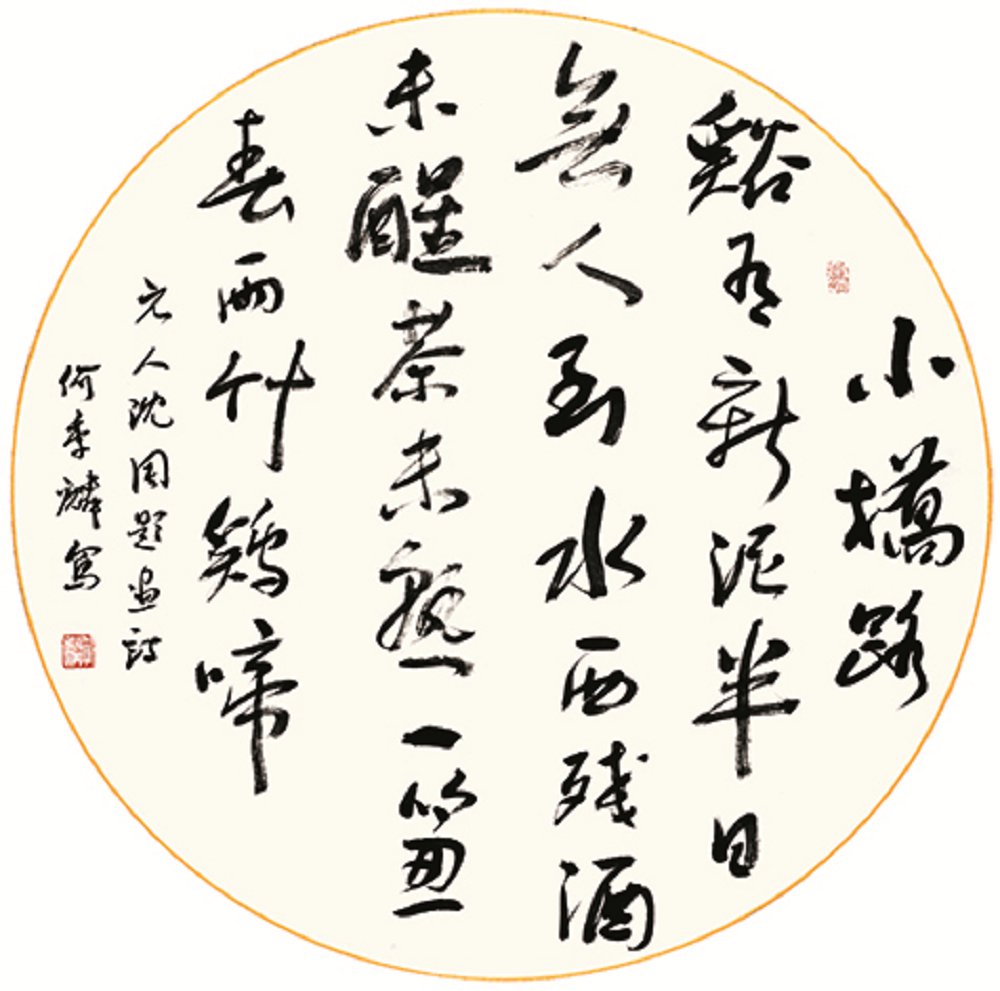 小橋路
谿有新泥半日
無人到水西残酒
未醒茶未熟一
春雨竹鷄啼
元人沈周題畫詩
何季麟寫